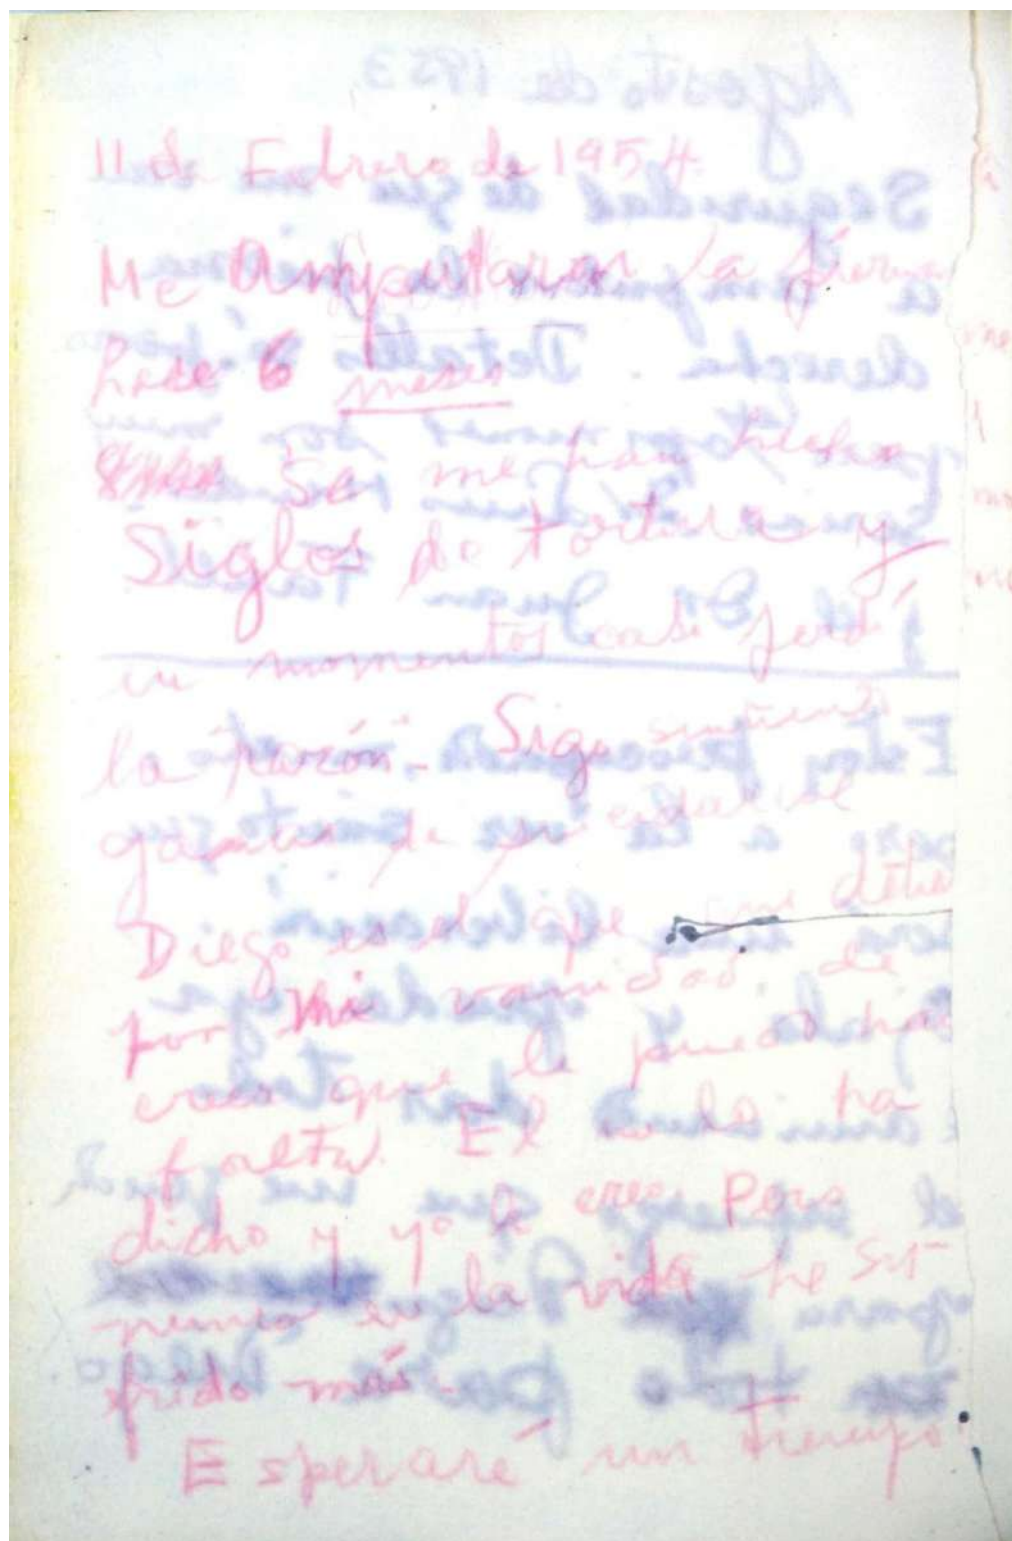 11 de Febrero de 1954.
Me Amputaron la pierna
hace 6 meses
Se me han hecho
Siglos de tortura y
en momentos casi perdí
la razón. Sigo sintiendo
ganas de suicidarme
Diego es el que me detiene
por mi vanidad de
creer que le puedo hacer
falta. El me lo ha
dicho y yo le creo. Pero
nunca en la vida he su-
frido más.
Esperaré un tiempo.